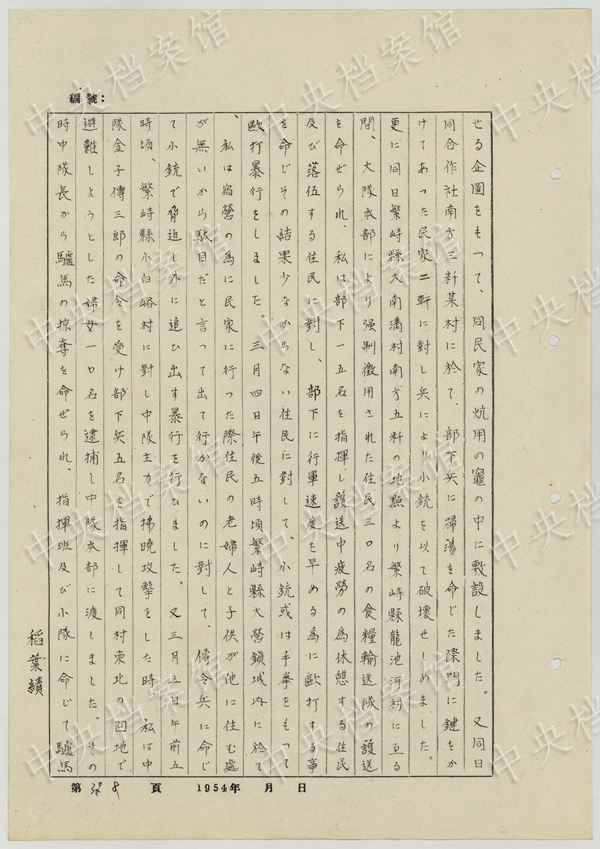 編號：
せる企圖をもつて、同民家の炕用の竈の中に敷設しました。又同日
同合作社南方三粁某村に於て、部下兵に掃蕩を命じた際門に鍵をか
けてあつた民家二軒に対し兵により小銃を以て破壊せしめました。
更に同日繁峙縣大南溝村南方五粁の地點より繁峙縣龍池河村に至る
間、大隊本部により强制徴用された住民三〇名の食糧輸送隊の護送
を命ぜられ、私は部下一五名を指揮し護送中疲労の為休憩する住民
及び落伍する住民に對し、部下に行軍速度を早める為に歐打する事
を命じその結果少なからない住民に對して、小銃或は手拳をもつて
歐打暴行をしました。三月四日午後五時頃繁峙縣大營鎮城内に於て
私は宿營の為に民家に行つた際住民の老婦人と子供が他に住む處
が無いから駄目だと言つて出て行かないのに對して、傳令兵に命じ
て小銃で脅迫し外に追ひ出す暴行を行ひました。又三月五日午前五
時頃、繁峙縣小白峪村に對し中隊主力で拂曉攻擊をした時、私は中
隊金子傳三郎の命令を受け部下兵五名を指揮して同村東北の凹地で
避難しようとした婦女一〇名を逮捕し中隊本部に渡しました。その
時中隊長から驢馬の掠奪を命ぜられ、指揮班及び小隊に命じて驢馬
稻葉績
第 頁 1954年 月 日
中央档案馆